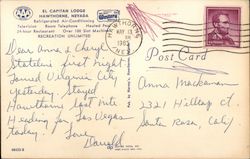 EL CAPITAN LODGE
HAWTHORNE, NEVADA
Refrigerated Air-Conditioning
Television Room Telephone Heated Pool
24-hour Restaurant Over 100 Slot Machines
RECREATION UNLIMITED
Dear Anna & Cheryl
Stateline first night
Toured Virginia City
yesterday. Stayed
Hawthorne last nite
Heading for Las Vegas
today. Love
Post Card
Anna Mackanan
2321 Hilltop Ct.
Santa Rosa, Calif